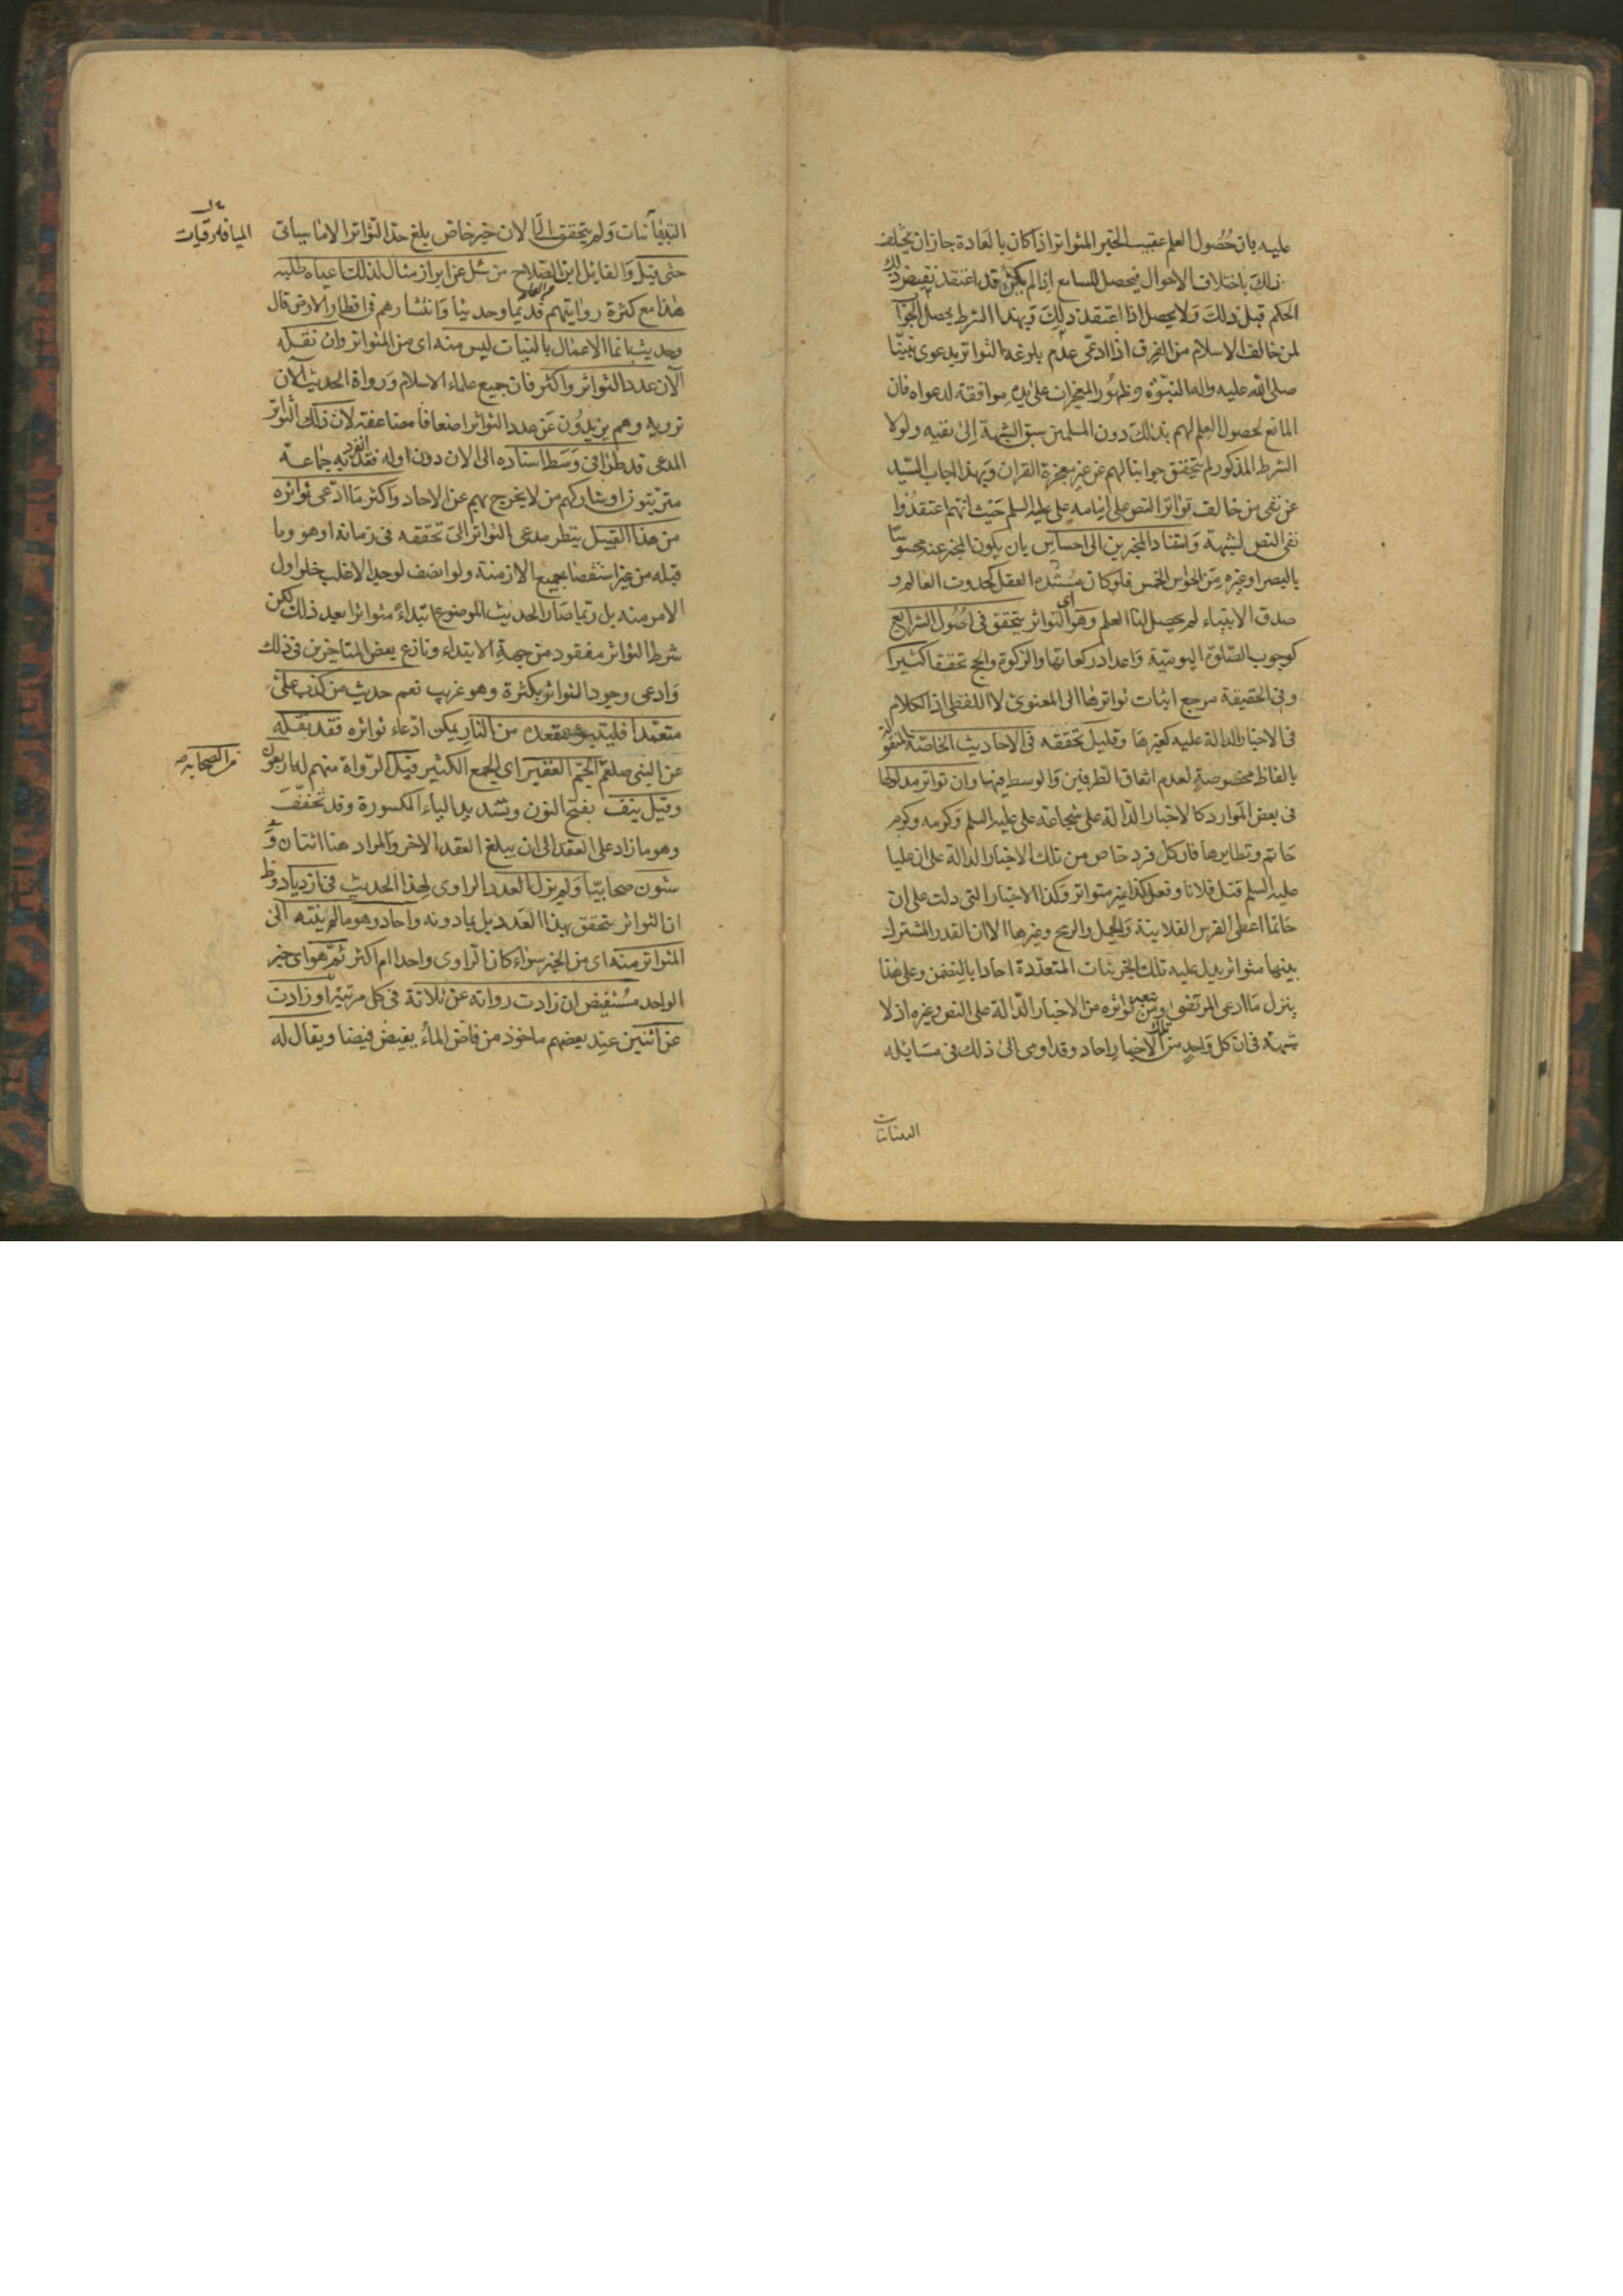 عليه بان حصول العلم عقيب الخبر المتواتر اذا كان بالعادة جاز ان يختلف
ذلك باختلاف الاحوال فيحصل للسامع اذا لم يكن قد اعتقد نقيض ذلك
الحكم قبل ذلك ولا يحصل اذا اعتقد ذلك وبهذا الشرط يحصل الجواب
لمن خالف الاسلام من الفرق اذا ادعى عدم بلوغه التواتر بدعوى نبينا
صلى الله عليه واله النبوة وظهور المعجزات على يده موافقة لدعواه فان
المانع لحصول العلم لهم بذلك دون المسلمين سبق الشبهة الى نفيه ولولا
الشرط المذكور لم يتحقق جوابنا لهم عن غير معجزة القران وبهذا اجاب السيد
عن نفى من خالف تواتر النص على امامه على عليه السلم حيث انهم اعتقدوا
نفى النص لشبهة واستناد المخبرين الى احساس بان يكون المخبر عنه محسوسا
بالبصر او غيره من الحواس الخمس فلو كان مستنده العقل كحدوث العالم و
صدق الانبياء لم يحصل لنا العلم وهو اى التواتر يتحقق فى اصول الشرايع
كوجوب الصلوة اليومية واعداد ركعاتها والزكوة والحج تحققا كثيرا
وفى الحقيقة مرجع اثبات تواترها الى المعنوى لا اللفظى اذ الكلام
فى الاخبار الدالة عليه كغيرها وقليل تحققه فى الاحاديث الخاصة المنقولة
بالفاظ مخصوصة لعدم اتفاق الطرفين والوسط فيها وان تواتر مدلولها
فى بعض الموارد كالاخبار الدالة على شجاعة على عليه السلم وكرمه وكرم
حاتم ونظايرها فان كل فرد خاص من تلك الاخبار الدالة على ان عليا
عليه السلم قتل فلانا وفعل كذا غير متواتر وكذا الاخبار التى دلت على ان
حاتما اعطى الفرس الفلانية والجمل والرمح وغيرها الا ان القدر المشترك
بينها متواتر يدل عليه تلك الجزئيات المتعددة احادا بالتضمن وعلى هذا
ينزل ما ادعى المرتضى ومن تبعه تواتره من الاخبار الدالة على النص وغيره اذ لا
شبهة فى ان كل واحد من تلك الاخبار احاد وقد اومى الى ذلك فى مسايله
التبانيات
التبانيات ولم يتحقق الى الان خبر خاص بلغ حد التواتر الا ما سياتى
الميافارقيات
حتى قيل والقايل ابن الصلاح من سئل عن ابراز مثال لذلك اعياه طلبه
هذا مع كثرة رواتهم قديما وحديثا وانتشارهم فى اقطار الارض قال
وحديث انما الاعمال بالنيات ليس منه اى من المتواتر وان نقله
الان عدد التواتر واكثر فان جميع علماء الاسلام ورواة الحديث الان
ترويه وهم يزيدون عن عدد التواتر اضعافا مضاعفة لان ذلك التواتر
المدعى قد طرا فى وسط اسناده الى الان دون اوله فقد انفرد به جماعة
مترتبون او شاركهم من لا يخرج بهم عن الاحاد واكثر ما ادعى تواتره
من هذا القبيل ينظر مدعى التواتر الى تحققه فى زمانه او هو وما
قبله من غير استقصا لجميع الازمنة ولو انصف لوجد الاغلب خلو اول
الامر منه بل ربما صار الحديث الموضوع ابتداء متواترا بعد ذلك لكن
شرط التواتر مفقود من جهة الابتداء ونازع بعض المتاخرين فى ذلك
وادعى وجود التواتر بكثرة وهو غريب نعم حديث من كذب على
متعمدا فليتبوء مقعده من النار يمكن ادعاء تواتره فقد نقله
عن النبى صلعم الجم الغفير اى الجمع الكثير قيل الرواة منهم له اربعون
من الصحابة صح
وقيل نيف بفتح النون وتشديد الياء المكسورة وقد تخفف
وهو ما زاد على العقد الى ان يبلغ العقد الاخر والمراد هنا اثنان و
ستون صحابيا ولم يزل العدد الراوى لهذا الحديث فى ازدياد وظ
ان التواتر يتحقق بهذا العدد بل بما دونه واحاد وهو ما لم ينته الى
المتواتر منه اى من الخبر سواء كان الراوى واحدا ام اكثر ثم هو اى خبر
الواحد مستفيض ان زادت رواته عن ثلاثة فى كل مرتبة او زادت
عن اثنين عند بعضهم ماخوذ من فاض الماء يفيض فيضا ويقال له